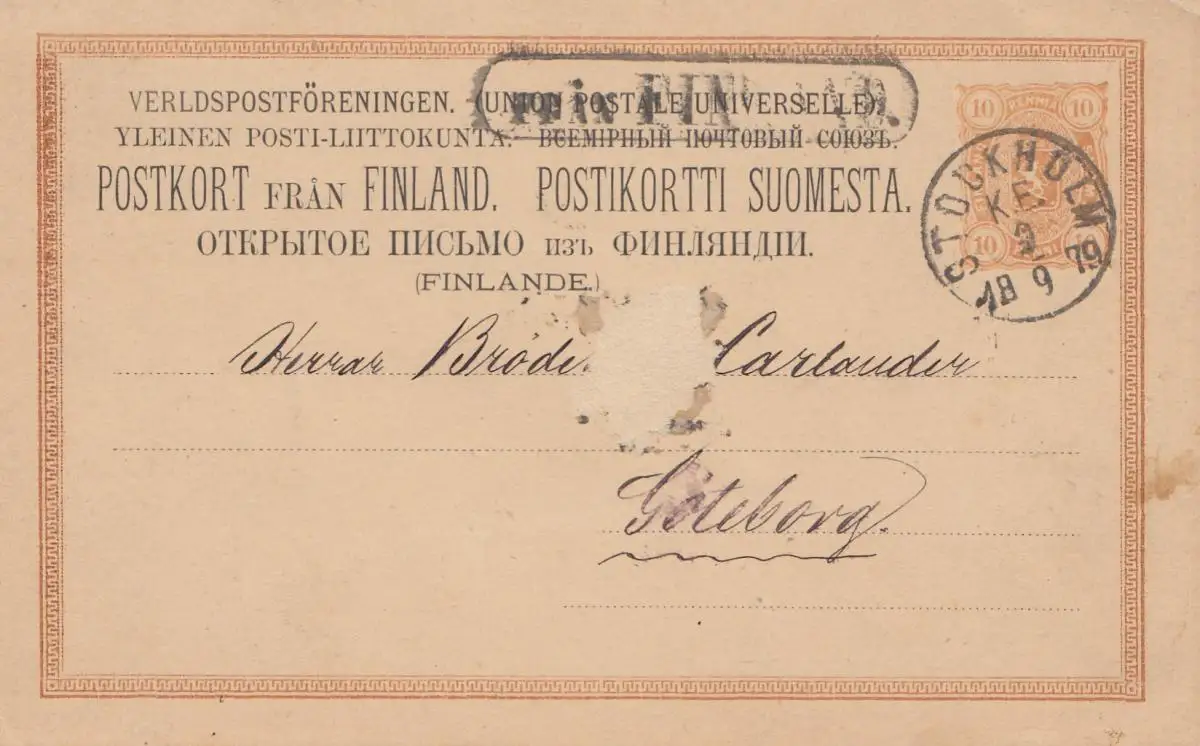 från FINLAND.
VERLDSPOSTFÖRENINGEN. (UNION POSTALE UNIVERSELLE).
YLEINEN POSTI-LIITTOKUNTA. ВСЕМІРНЫЙ ПОЧТОВЫЙ СОЮЗЪ.
POSTKORT FRÅN FINLAND. POSTIKORTTI SUOMESTA.
ОТКРЫТОЕ ПИСЬМО ИЗЪ ФИНЛЯНДІИ.
(FINLANDE.)
10 10
10 10
STOCKHOLM
K.E.
2
18 9 79
Herrar Bröde Carlander
Göteborg.